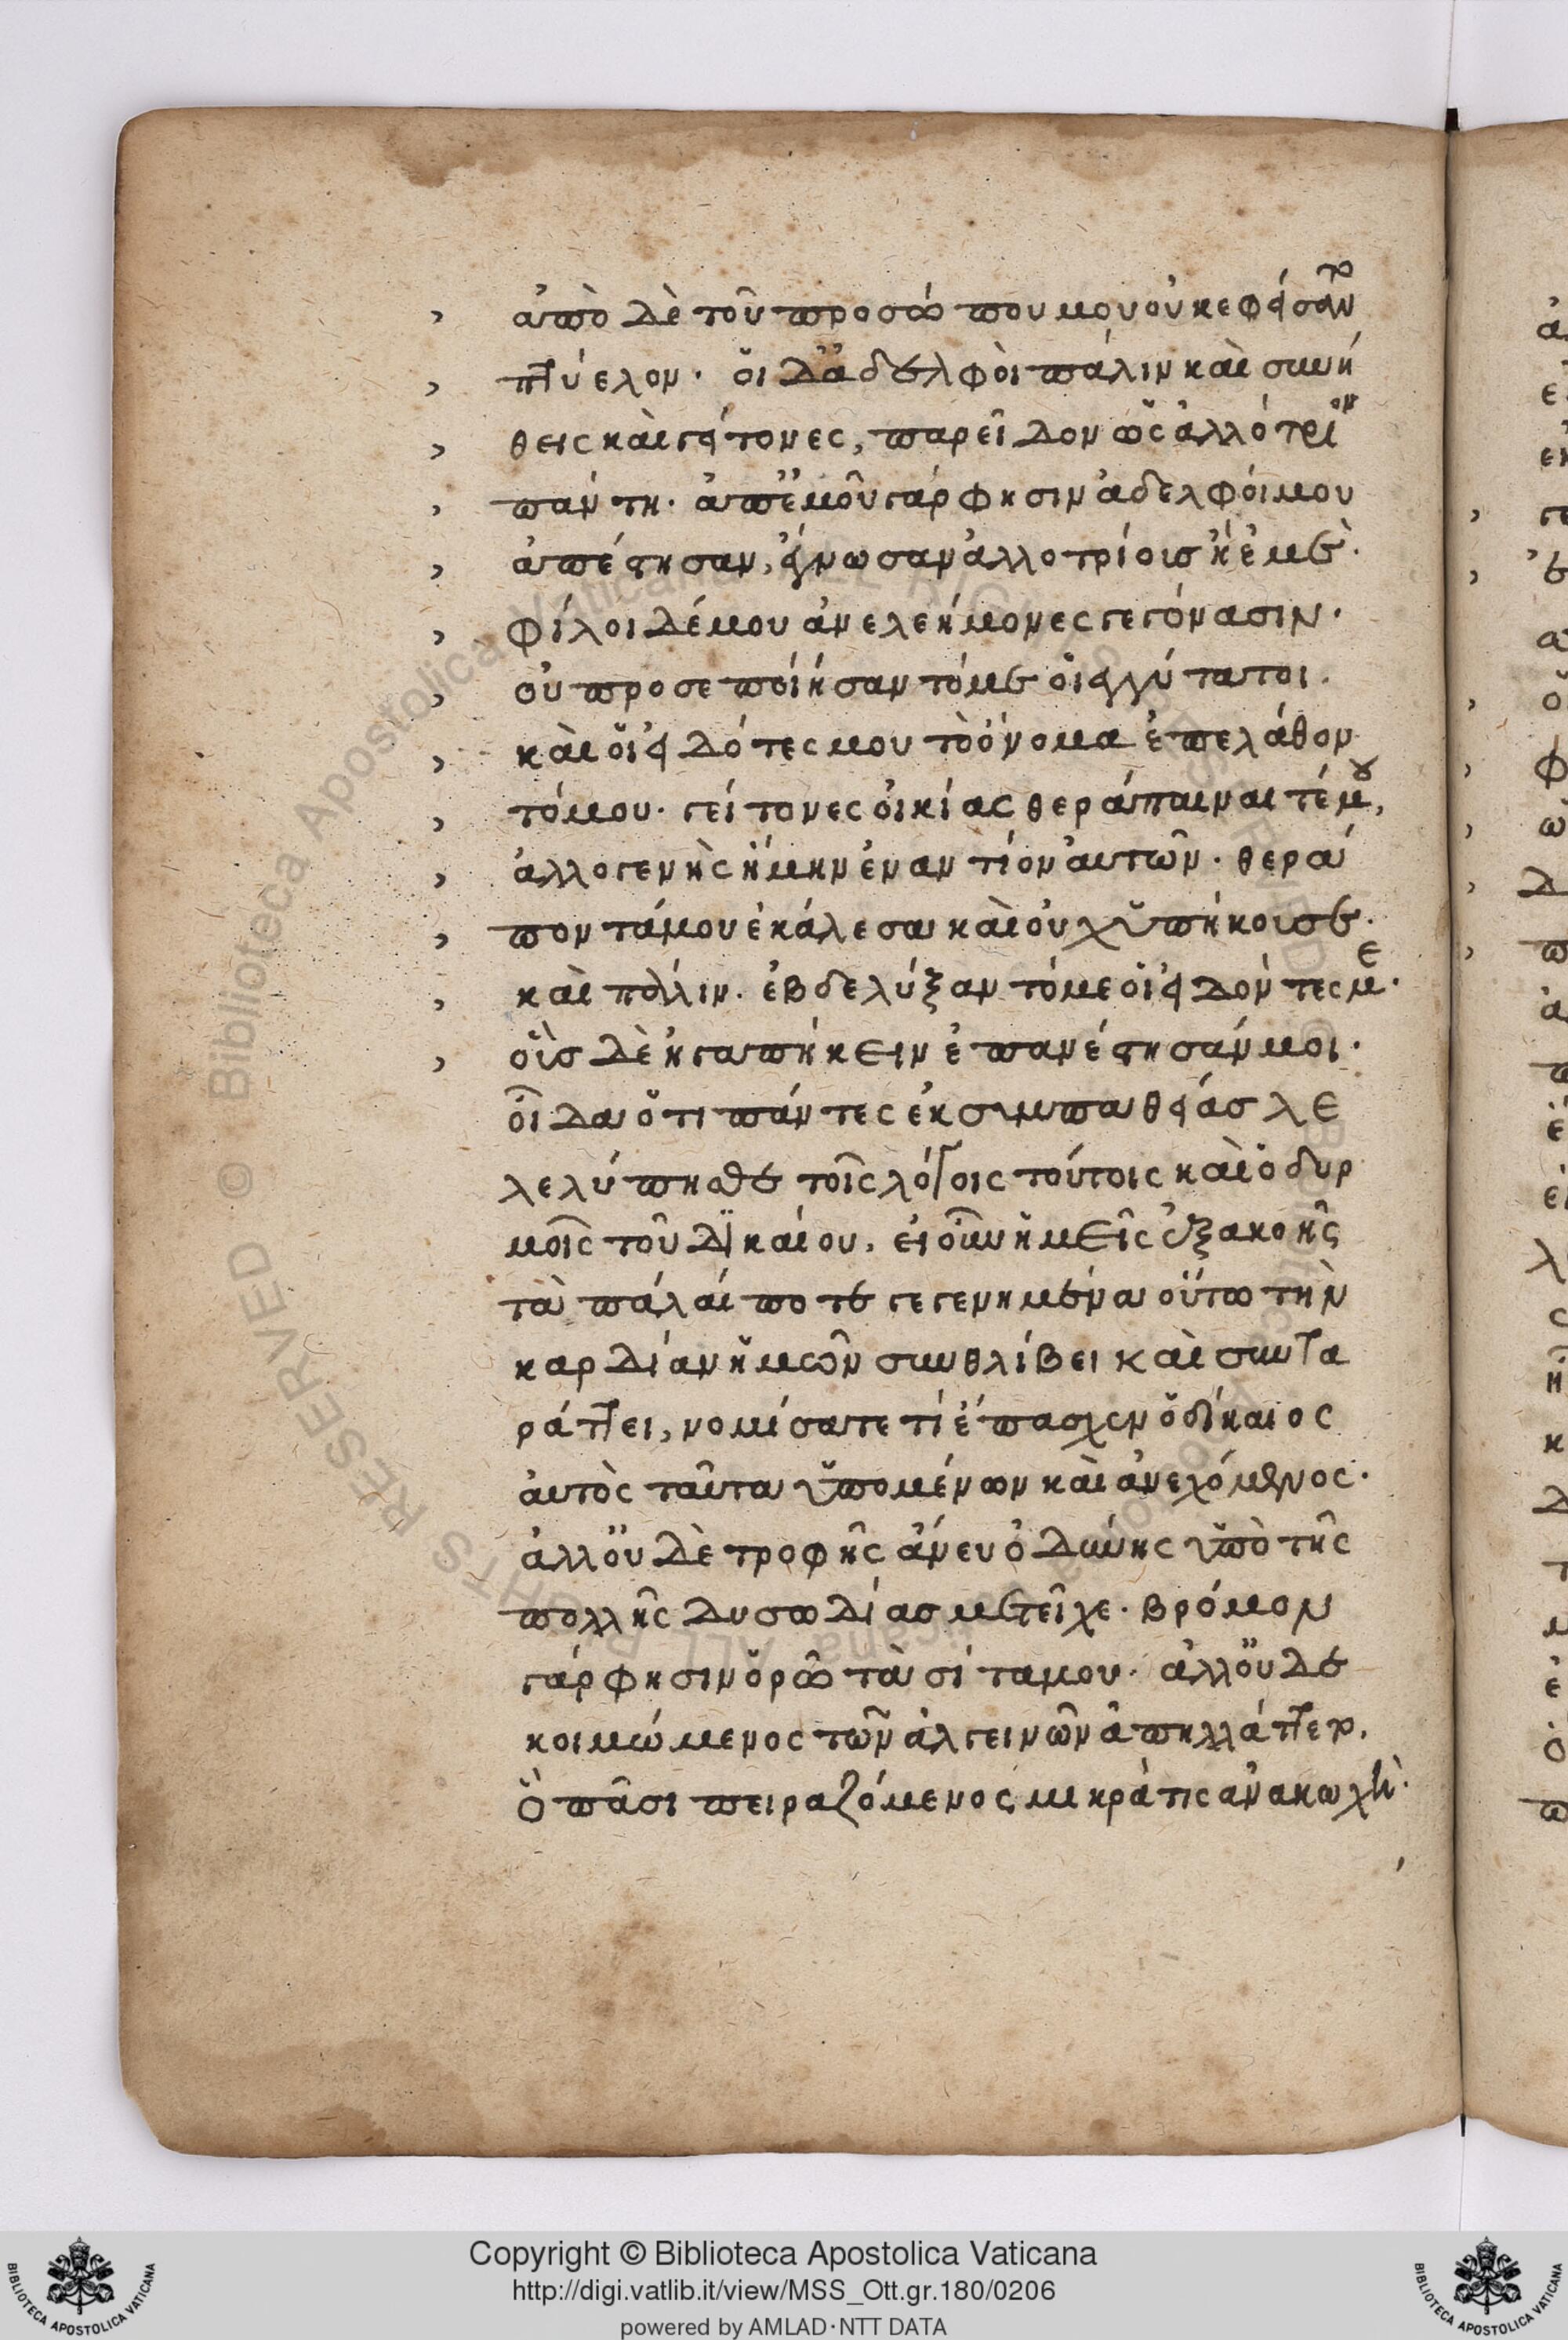 ἀπὸ δὲ τοῦ προσώπου μου οὐκ ἐφείσαντο
πτύελον· οἱ δ' ἀδελφοὶ πάλιν καὶ συνή
θεις καὶ γείτονες, παρεῖδον ὡς ἀλλότριον
πάντη· ἀπ' ἐμοῦ γάρ φησιν ἀδελφοί μου
ἀπέστησαν, ἔγνωσαν ἀλλοτρίους ἢ ἐμέ·
φίλοι δέ μου ἀνελεήμονες γεγόνασιν·
οὐ προσεποιήσαντό με οἱ ἐγγύτατοι·
καὶ οἱ εἰδότες μου τὸ ὄνομα ἐπελάθον
τό μου· γείτονες οἰκίας θεράπαιναί τέ μου,
ἀλλογενὴς ἤμην ἐναντίον αὐτῶν· θερά
ποντά μου ἐκάλεσα καὶ οὐχ ὑπήκουσε·
καὶ πάλιν· ἐβδελύξαντό με οἱ εἰδόντες με·
οὓς δὲ ἠγαπήκειν ἐπανέστησάν μοι·
οἶδα ὅτι πάντες ἐκ συμπαθείας λε
λελύπησθε τοῖς λόγοις τούτοις καὶ ὀδυρ
μοῖς τοῦ δικαίου, εἰ οὖν ἡμεῖς ἐξ ἀκοῆς
τὰ πάλαί ποτε γεγενημένα οὕτω τὴν
καρδίαν ἡμῶν συνθλίβει καὶ συντα
ράττει, νομίσατε τί ἔπασχεν ὁ δίκαιος
αὐτὸς ταῦτα ὑπομένων καὶ ἀνεχόμενος·
ἀλλ' οὐδὲ τροφῆς ἄνευ ὀδύνης ὑπὸ τῆς
πολλῆς δυσωδίας μετεῖχε· βρόμον
γάρ φησιν ὁρῶ τὰ σῖτα μου· ἀλλ' οὐδὲ
κοιμώμενος τῶν ἀλγεινῶν ἀπηλλάττετο.
ὃ πᾶσι πειραζόμενος μικρά τις ἀνακωχή·
Copyright © Biblioteca Apostolica Vaticana
http://digi.vatlib.it/view/MSS_Ott.gr.180/0206
powered by AMLAD·NTT DATA